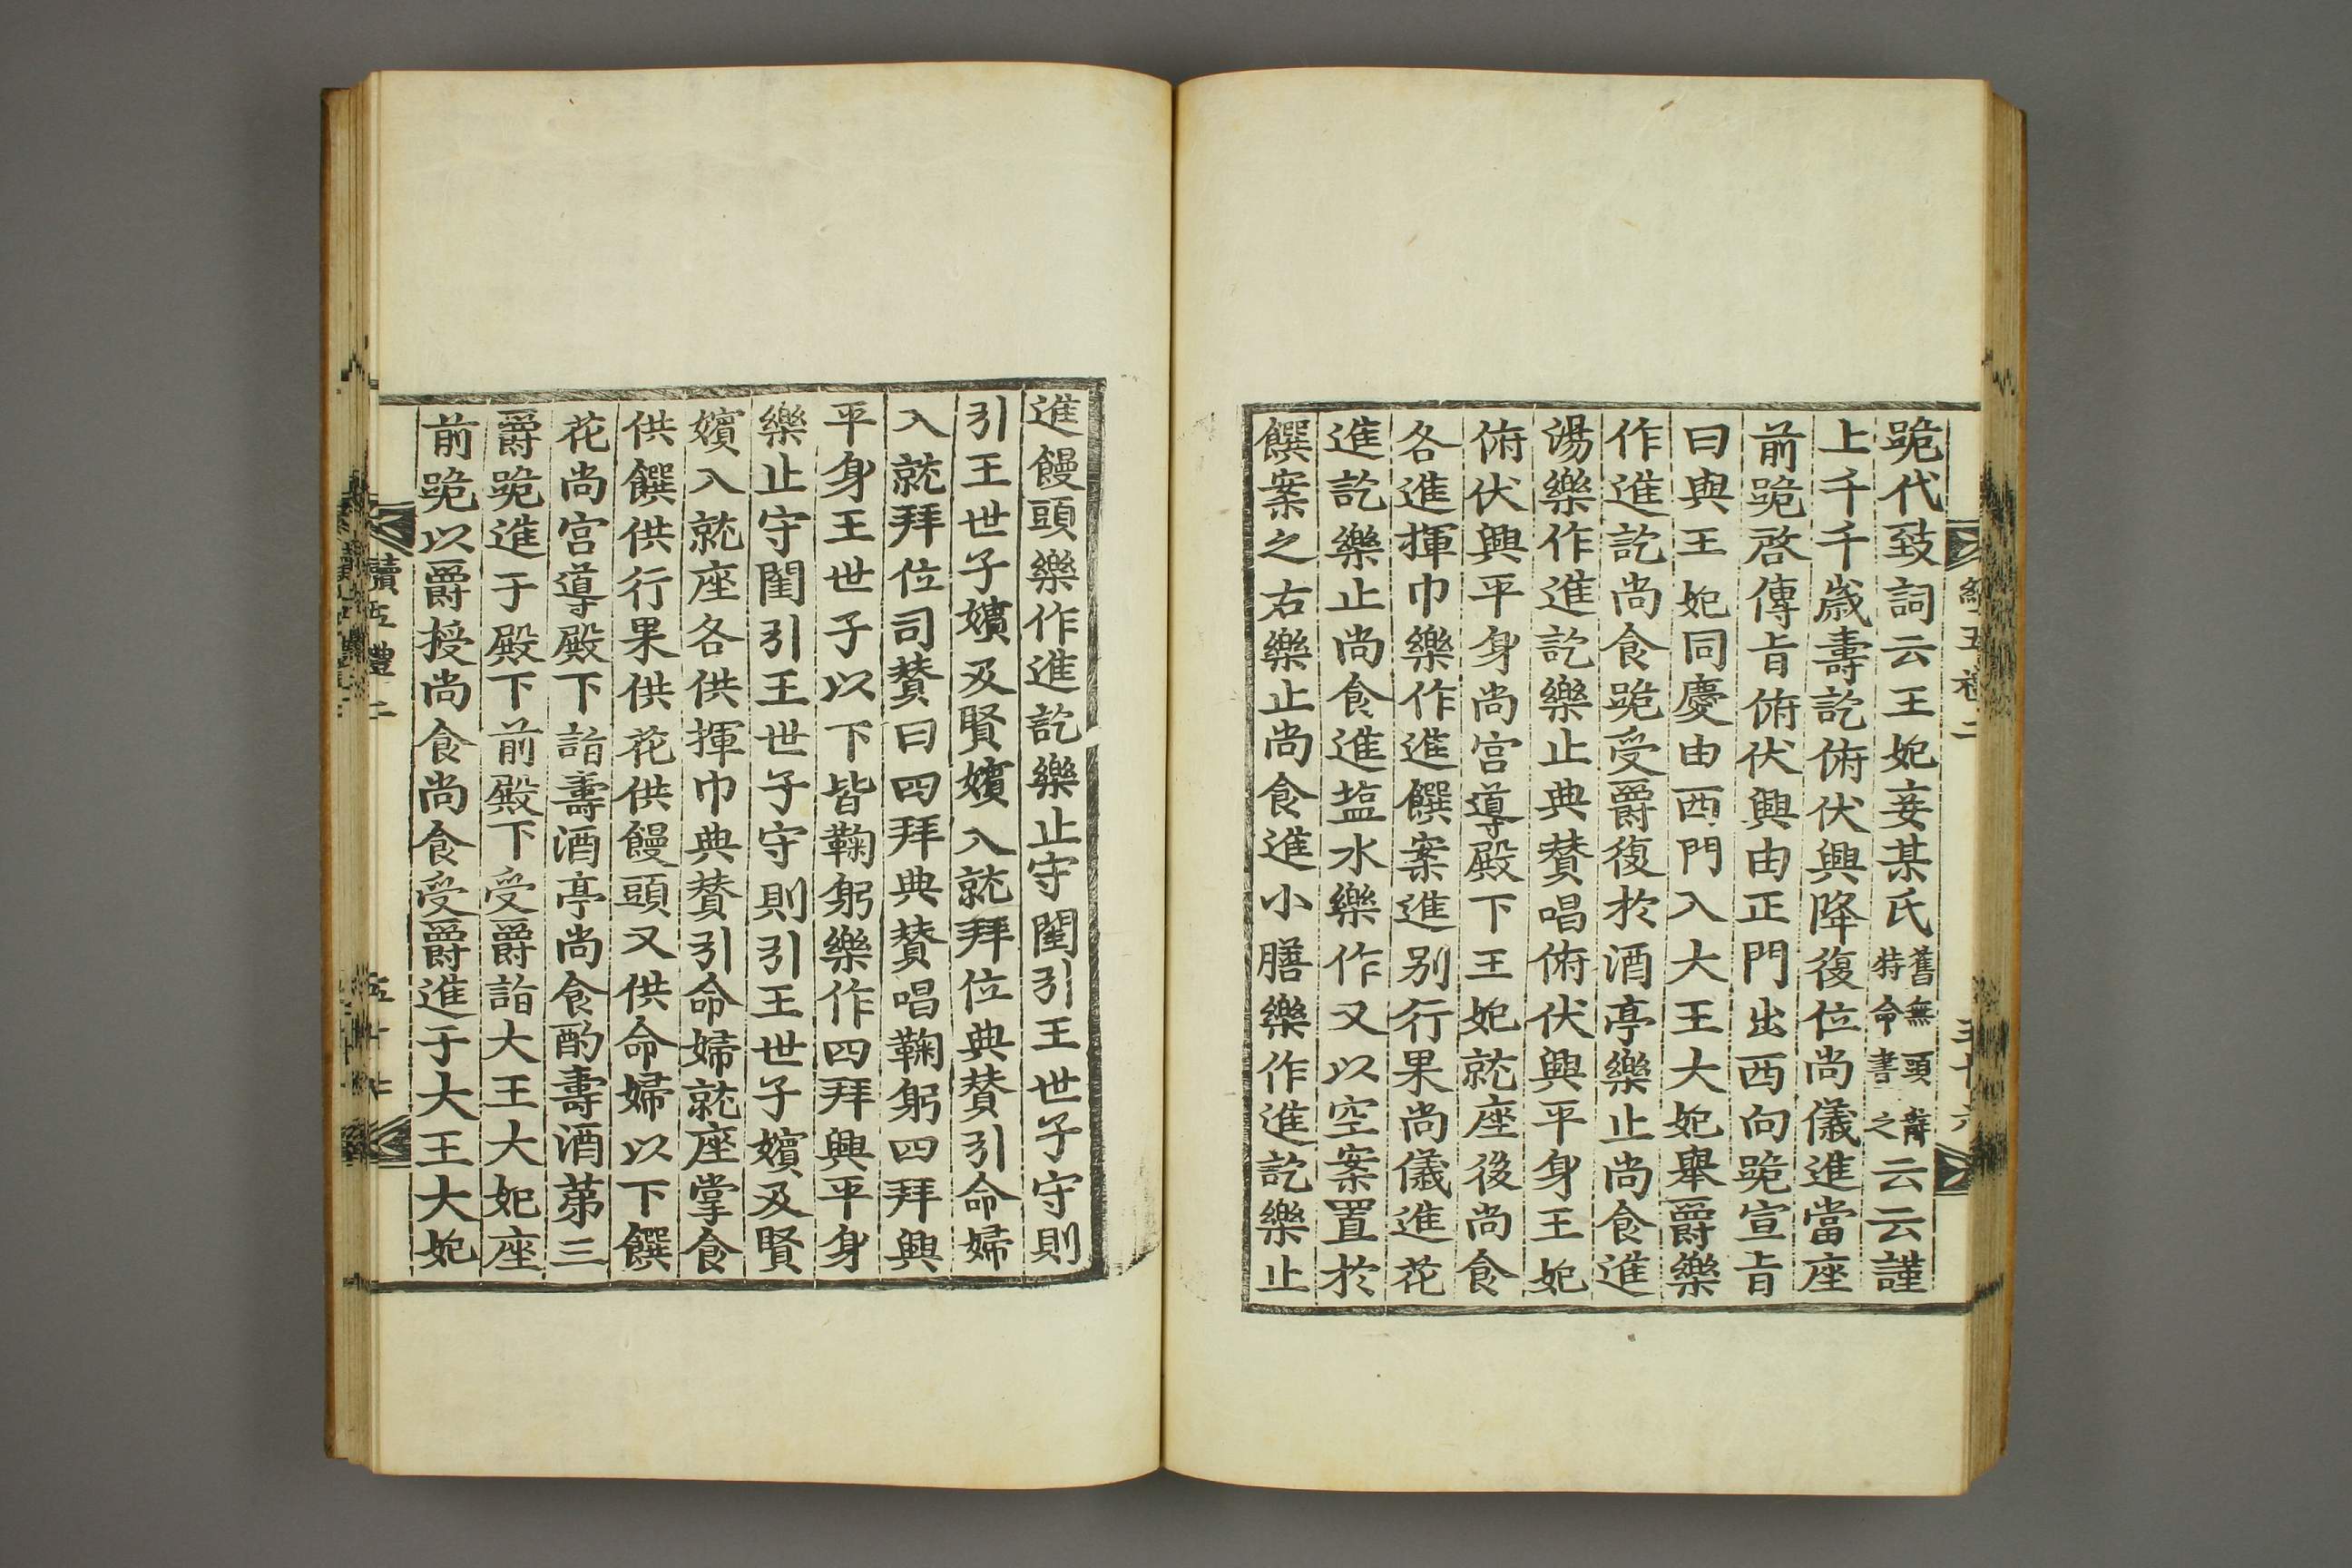 跪代致詞云王妃妾某氏舊無頭辭特命書之云云謹
上千千歲壽訖俯伏興降復位尚儀進當座
前跪啓傳旨俯伏興由正門出西向跪宣旨
曰與王妃同慶由西門入大王大妃舉爵樂
作進訖尚食跪受爵復於酒亭樂止尚食進
湯樂作進訖樂止典贊唱俯伏興平身王妃
俯伏興平身尚宮導殿下王妃就座後尚食
各進揮巾樂作進饌案進別行果尚儀進花
進訖樂止尚食進塩水樂作又以空案置於
饌案之右樂止尚食進小膳樂作進訖樂止
進饅頭樂作進訖樂止守閨引王世子守則
引王世子嬪及賢嬪入就拜位典贊引命婦
入就拜位司贊曰四拜典贊唱鞠躬四拜興
平身王世子以下皆鞠躬樂作四拜興平身
樂止守閨引王世子守則引王世子嬪及賢
嬪入就座各供揮巾典贊引命婦就座掌食
供饌供行果供花供饅頭又供命婦以下饌
花尚宮導殿下詣壽酒亭尚食酌壽酒第三
爵跪進于殿下前殿下受爵詣大王大妃座
前跪以爵授尚食尚食受爵進于大王大妃
續五禮二
五十七